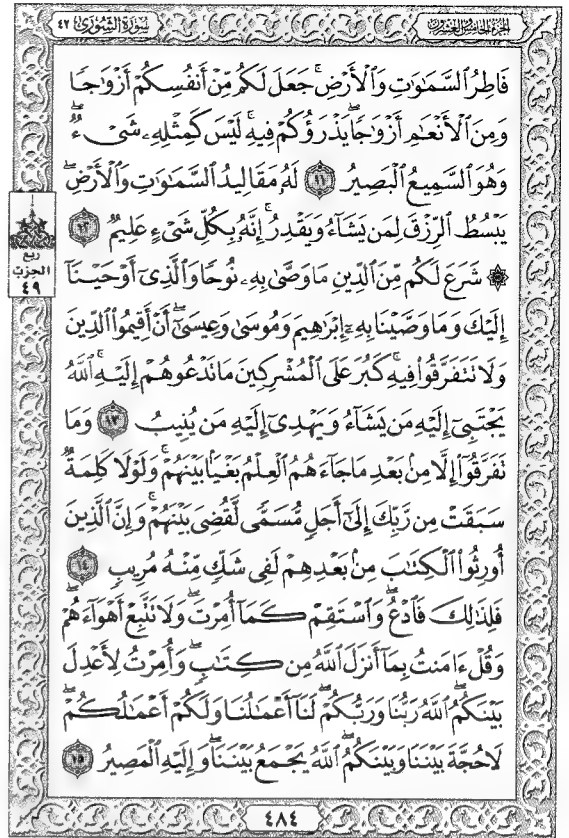 الجزء الخامس والعشرون
سورة الشورى ٤٢
فَاطِرُ ٱلسَّمَٰوَٰتِ وَٱلْأَرْضِ ۚ جَعَلَ لَكُم مِّنْ أَنفُسِكُمْ أَزْوَٰجًا
وَمِنَ ٱلْأَنْعَٰمِ أَزْوَٰجًا ۖ يَذْرَؤُكُمْ فِيهِ ۚ لَيْسَ كَمِثْلِهِۦ شَىْءٌ ۖ
وَهُوَ ٱلسَّمِيعُ ٱلْبَصِيرُ ١١ لَهُۥ مَقَالِيدُ ٱلسَّمَٰوَٰتِ وَٱلْأَرْضِ ۖ
يَبْسُطُ ٱلرِّزْقَ لِمَن يَشَآءُ وَيَقْدِرُ ۚ إِنَّهُۥ بِكُلِّ شَىْءٍ عَلِيمٌ ١٢
ربع
الحزب
٤٩
۞ شَرَعَ لَكُم مِّنَ ٱلدِّينِ مَا وَصَّىٰ بِهِۦ نُوحًا وَٱلَّذِىٓ أَوْحَيْنَآ
إِلَيْكَ وَمَا وَصَّيْنَا بِهِۦٓ إِبْرَٰهِيمَ وَمُوسَىٰ وَعِيسَىٰٓ ۖ أَنْ أَقِيمُوا۟ ٱلدِّينَ
وَلَا تَتَفَرَّقُوا۟ فِيهِ ۚ كَبُرَ عَلَى ٱلْمُشْرِكِينَ مَا تَدْعُوهُمْ إِلَيْهِ ۚ ٱللَّهُ
يَجْتَبِىٓ إِلَيْهِ مَن يَشَآءُ وَيَهْدِىٓ إِلَيْهِ مَن يُنِيبُ ١٣ وَمَا
تَفَرَّقُوٓا۟ إِلَّا مِنۢ بَعْدِ مَا جَآءَهُمُ ٱلْعِلْمُ بَغْيًۢا بَيْنَهُمْ ۚ وَلَوْلَا كَلِمَةٌ
سَبَقَتْ مِن رَّبِّكَ إِلَىٰٓ أَجَلٍ مُّسَمًّى لَّقُضِىَ بَيْنَهُمْ ۚ وَإِنَّ ٱلَّذِينَ
أُورِثُوا۟ ٱلْكِتَٰبَ مِنۢ بَعْدِهِمْ لَفِى شَكٍّ مِّنْهُ مُرِيبٍ ١٤
فَلِذَٰلِكَ فَٱدْعُ ۖ وَٱسْتَقِمْ كَمَآ أُمِرْتَ ۖ وَلَا تَتَّبِعْ أَهْوَآءَهُمْ ۖ
وَقُلْ ءَامَنتُ بِمَآ أَنزَلَ ٱللَّهُ مِن كِتَٰبٍ ۖ وَأُمِرْتُ لِأَعْدِلَ
بَيْنَكُمُ ۖ ٱللَّهُ رَبُّنَا وَرَبُّكُمْ ۖ لَنَآ أَعْمَٰلُنَا وَلَكُمْ أَعْمَٰلُكُمْ ۖ
لَا حُجَّةَ بَيْنَنَا وَبَيْنَكُمُ ۖ ٱللَّهُ يَجْمَعُ بَيْنَنَا ۖ وَإِلَيْهِ ٱلْمَصِيرُ ١٥
٤٨٤